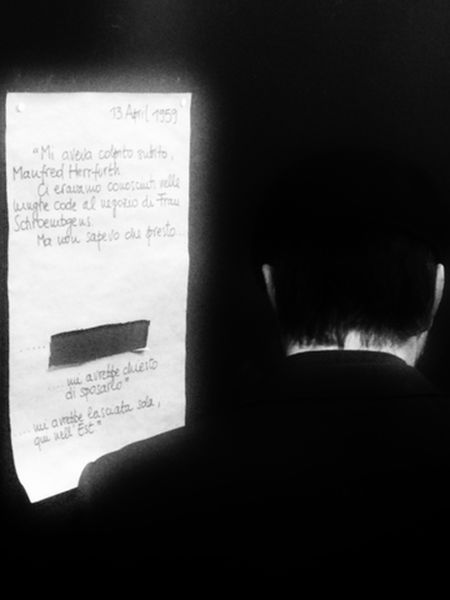 13 April 1959
"Mi aveva colpito subito,
Manfred Herrfurth.
Ci eravamo conosciuti nelle
lunghe code al negozio di Frau
Schroembgens.
Ma non sapevo che presto...
...mi avrebbe chiesto
di sposarlo"
...mi avrebbe lasciata sola,
qui nell'Est"